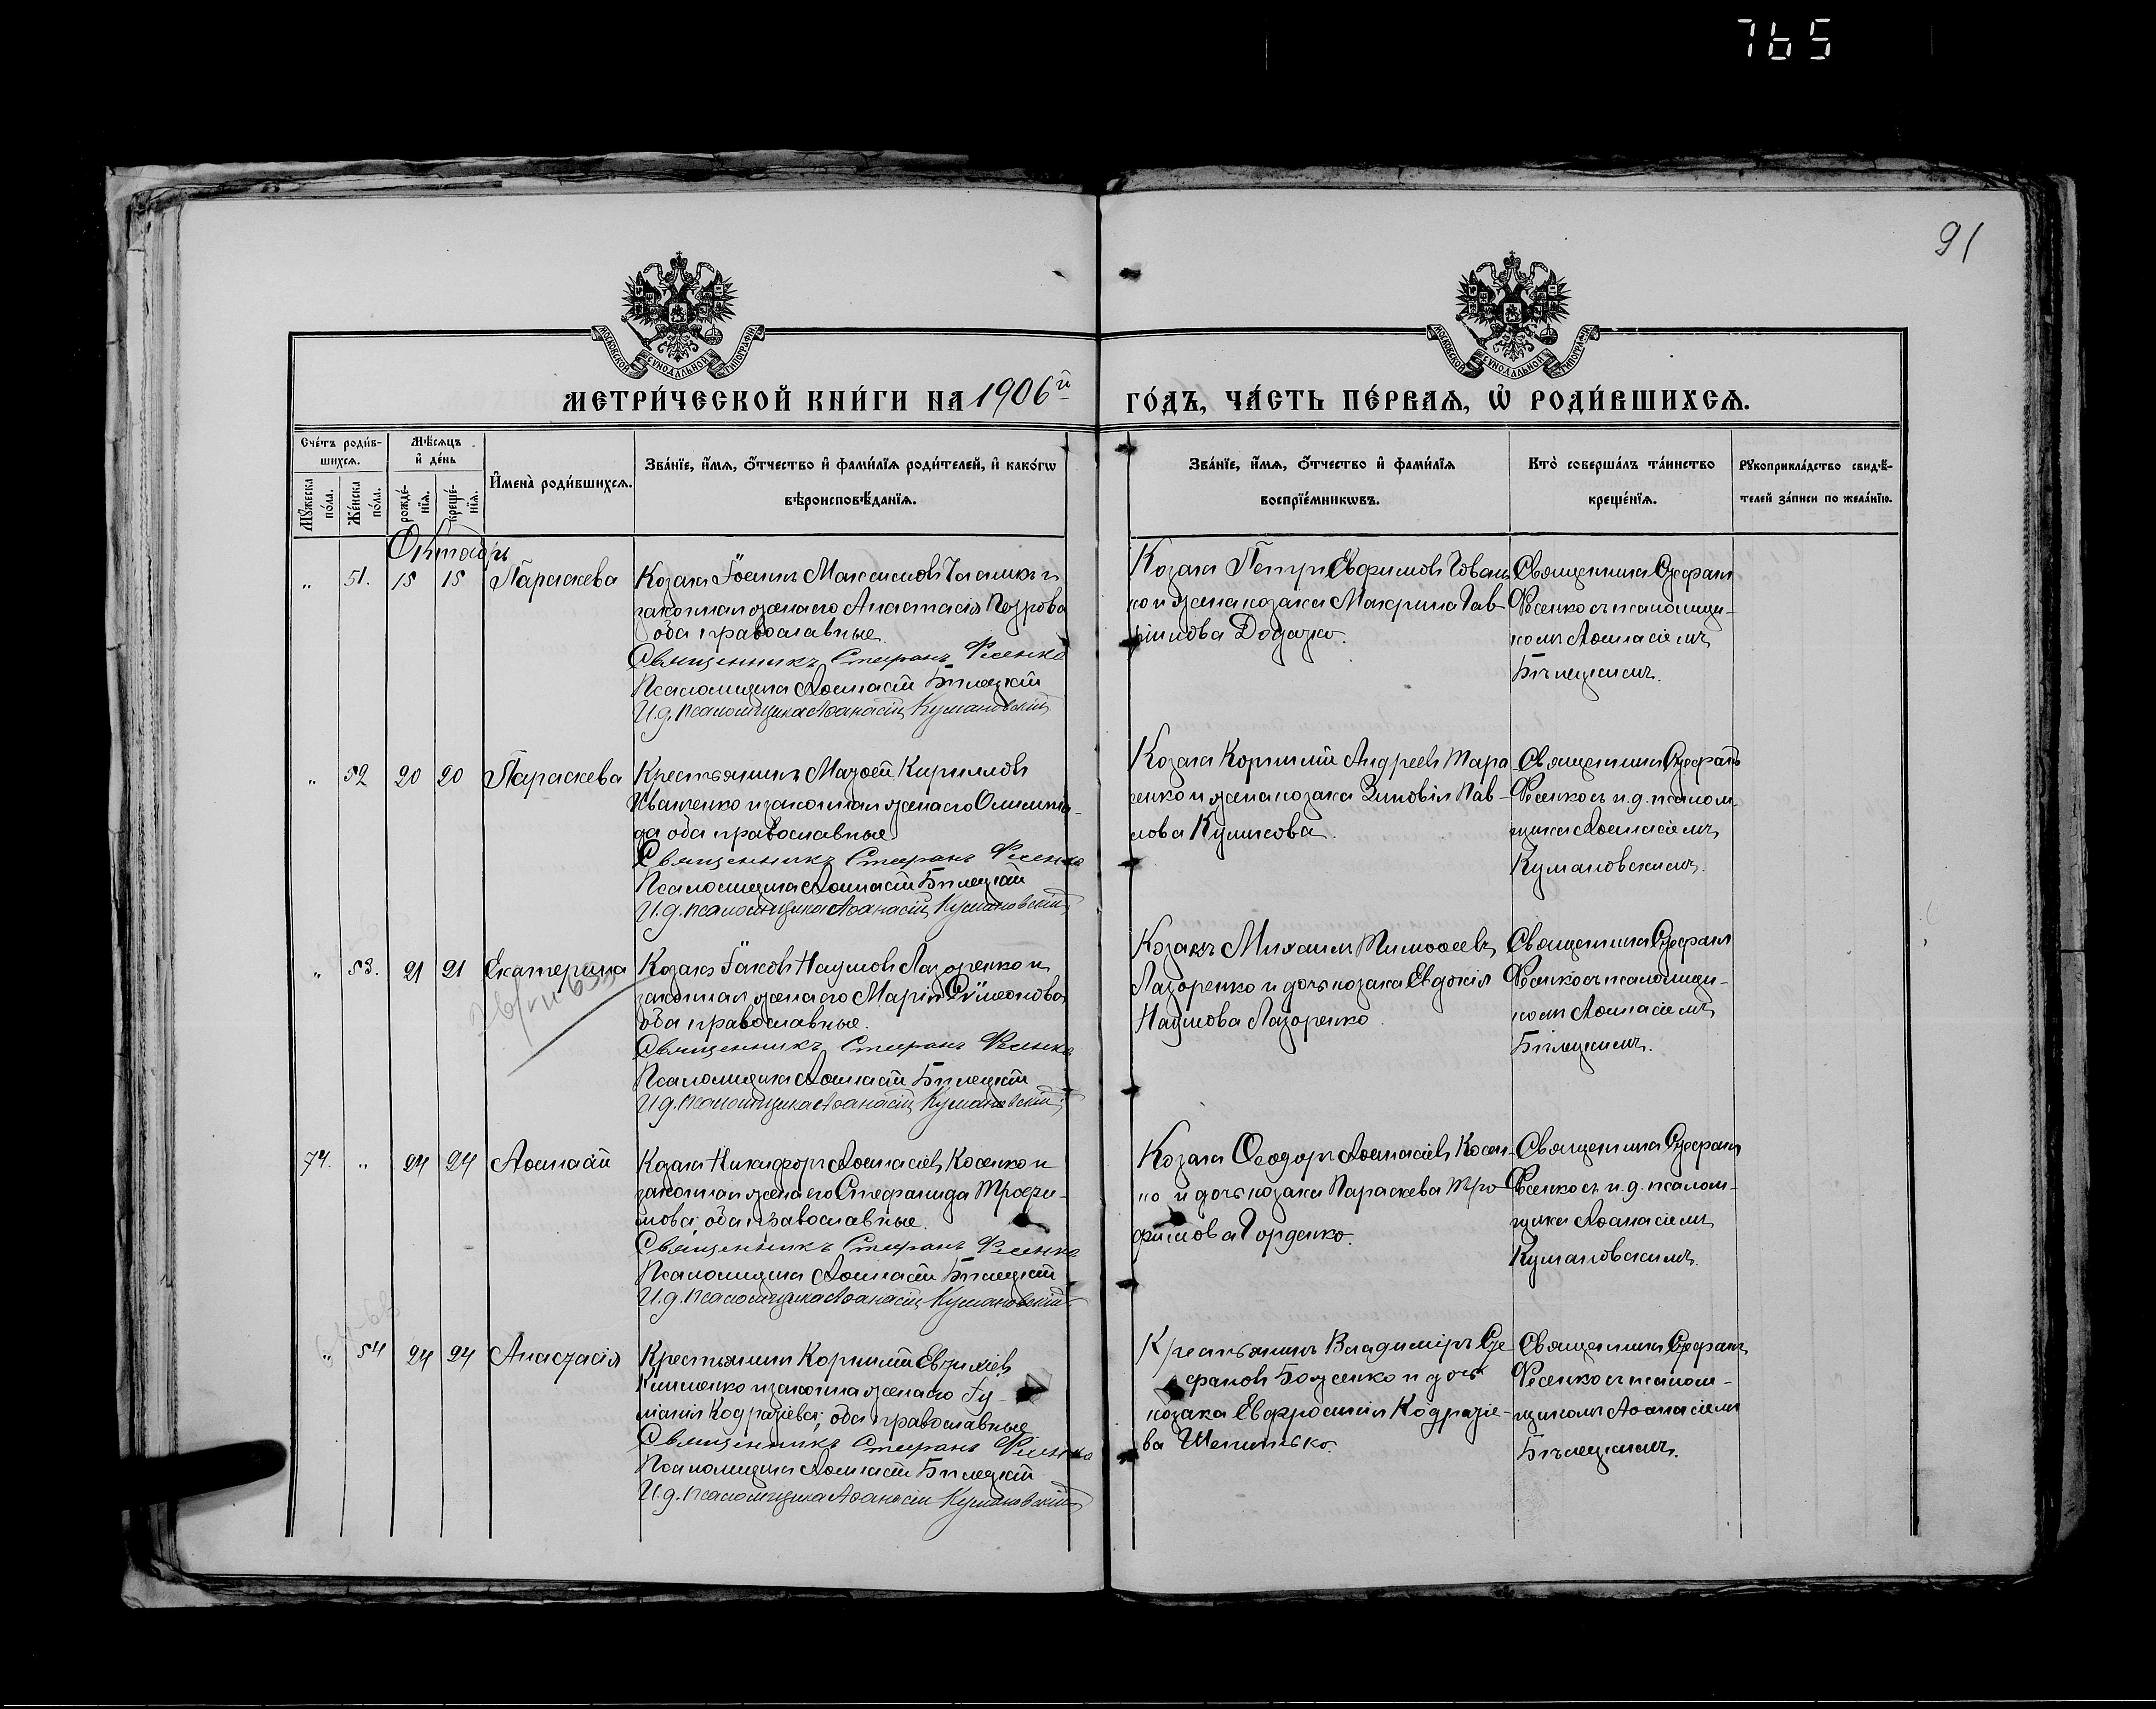 765
91
МОСКОВСКОЙ СѴНОДАЛЬНОЙ ТИПОГРАФІИ
МОСКОВСКОЙ СѴНОДАЛЬНОЙ ТИПОГРАФІИ
МЕТРИ́ЧЕСКОЙ КНИ́ГИ НА 1906й
ГО́ДЪ, ЧА́СТЬ ПЕ́РВАѦ, Ѡ҆ РОДИ́ВШИХСѦ.
Сче́тъ роди́в-
шихсѧ.
Мѣ́сѧцъ
и҆ де́нь
Мꙋ́жеска
по́ла.
Же́нска
по́ла.
рожде́-
нїѧ.
креще́-
нїѧ.
И҆мена̀ роди́вшихсѧ.
Зва́нїе, и҆́мѧ, ѻ҆́тчество и҆ фами́лїѧ роди́телей, и҆ како́гѡ
вѣроисповѣ́данїѧ.
Зва́нїе, и҆́мѧ, ѻ҆́тчество и҆ фами́лїѧ
воспрїе́мникѡвъ.
Кто̀ соверша́лъ та́инство
креще́нїѧ.
Рꙋкоприкла́дство свидѣ́-
телей за́писи по жела́нїю.
Октябрь
" 51. 15 15 Параскева
Козакъ Іоаннъ Максимовъ и
законная жена его Анастасія Петрова
оба православные.
Священникъ Стефанъ Фесенко
Псаломщикъ Аѳанасій Бѣлецкій
И.д. псаломщика Аѳанасій Кумановскій
Козакъ Петръ Евфимовъ Гован
ко и жена козака Макрина Гав-
ріилова Додатко.
Священникъ Стефанъ
Фесенко съ псаломщи-
комъ Аѳанасіемъ
Бѣлецкимъ.
" 52 20 20 Параскева
Крестьянинъ Моѵсей Кирилловъ
Иванченко и законная жена его Олимпіа-
да оба православные.
Священникъ Стефанъ Фесенко
Псаломщикъ Аѳанасій Бѣлецкій
И.д. псаломщика Аѳанасій Кумановскій
Козакъ Корнилій Андреевъ Тара
сенко и жена козака Зиновія Пав-
лова Куликова.
Священникъ Стефанъ
Фесенко съ и.д. псалом-
щика Аѳанасіемъ
Кумановскимъ.
" 53. 21 21 Екатерина
Козакъ Іаковъ Наумовъ Лазоренко и
законная жена его Марія Сѵмеонова
оба православные.
Священникъ Стефанъ Фесенко
Псаломщикъ Аѳанасій Бѣлецкій
И.д. псаломщика Аѳанасій Кумановскій
Козакъ Михаилъ Тимоѳеевъ
Лазоренко и дочь козака Евдокія
Наумова Лазоренко.
Священникъ Стефанъ
Фесенко съ псаломщи-
комъ Аѳанасіемъ
Бѣлецкимъ.
74. " 24 24 Аѳанасій
Козакъ Никифоръ Аѳанасіевъ Косенко и
законная жена его Стефанида Трофи-
мова; оба православные.
Священникъ Стефанъ Фесенко
Псаломщикъ Аѳанасій Бѣлецкій
И.д. псаломщика Аѳанасій Кумановскій
Козакъ Ѳеодоръ Аѳанасіевъ Косен-
ко и дочь козака Параскева Тро-
фимова Горденко.
Священникъ Стефанъ
Фесенко съ и.д. псалом-
щика Аѳанасіемъ
Кумановскимъ.
" 54 24 24 Анастасія
Крестьянинъ Корнилій Евтихіевъ
Клименко и законна жена его Іу-
ліанія Кодратіева; оба православные.
Священникъ Стефанъ Фесенко
Псаломщикъ Аѳанасій Бѣлецкій
И.д. псаломщика Аѳанасій Кумановскій
Крестьянинъ Владиміръ Сте
фановъ Боженко и дочь
козака Евфросинія Кодратіе-
ва Шепитько.
Священникъ Стефанъ
Фесенко съ псалом-
щикомъ Аѳанасіемъ
Бѣлецкимъ.